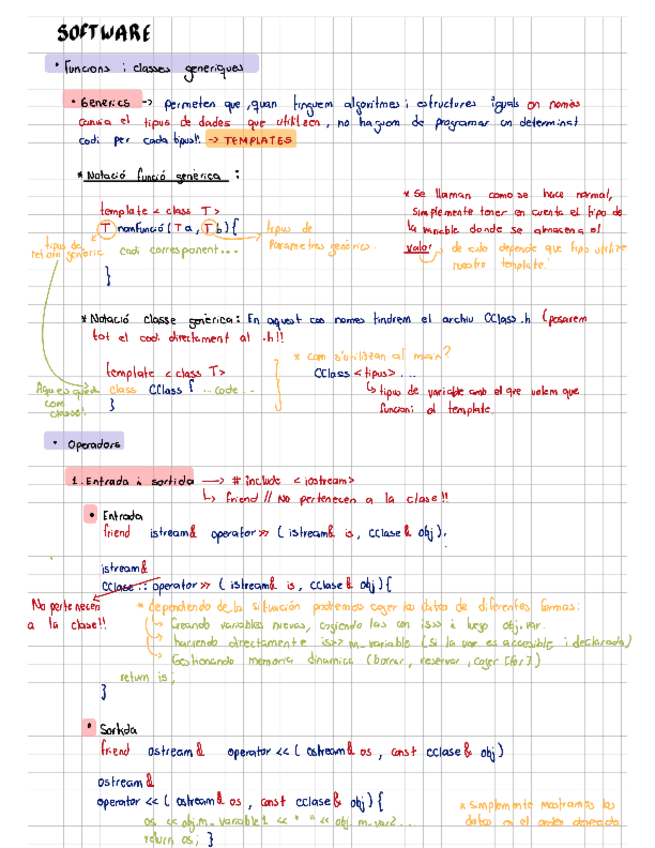 SOFTWARE
• Funcions i classes genèriques
• Generics -> permeten que, quan tinguem algoritmes i estructures iguals on només
canvia el tipus de dades que utilitzen, no haguem de programar un determinat
codi per cada tipus!! -> TEMPLATES
* Notació funció genèrica :
template < class T >
T nomfunció ( T a , T b ) {
tipus de
retorn genèric
codi corresponent ...
}
tipus de
Parametres genèrics.
* Se llaman como se hace normal,
simplemente tener en cuenta el tipo de
la variable donde se almacena el
valor de esto depende que tipo utilize
nuestro template.
* Notació classe genèrica: En aquest cas només tindrem el archiu CClass.h (posarem
tot el codi directament al .h!!
template < class T >
class CClass { ... code ...
}
Aqui es queda
com
classe!
* com s'utilitzen al main?
CClass < tipus > ...
tipus de variable amb el que volem que
funcioni el template.
• Operadors
1. Entrada i sortida -> # include < iostream >
friend // No pertenecen a la clase!!
• Entrada
friend istream& operator >> ( istream& is, cclase& obj );
istream&
cclase :: operator >> ( istream& is, cclase& obj ) {
No pertenecen
a la clase!!
* dependiendo de la situación podremos coger los datos de diferentes formas:
Creando variables nuevas, cogiendo las con is>> i luego obj.var.
haciendo directamente is>> m_variable (si la var es accesible i declarada)
Gestionando memoria dinamica (borrar, reservar, coger [for])
return is;
}
• Sortida
friend ostream& operator << ( ostream& os, const cclase& obj )
ostream&
operator << ( ostream& os, const cclase& obj ) {
os << obj.m_variable1 << " " << obj.m_var2...
return os; }
* simplemente mostramos los
datos en el orden deseado